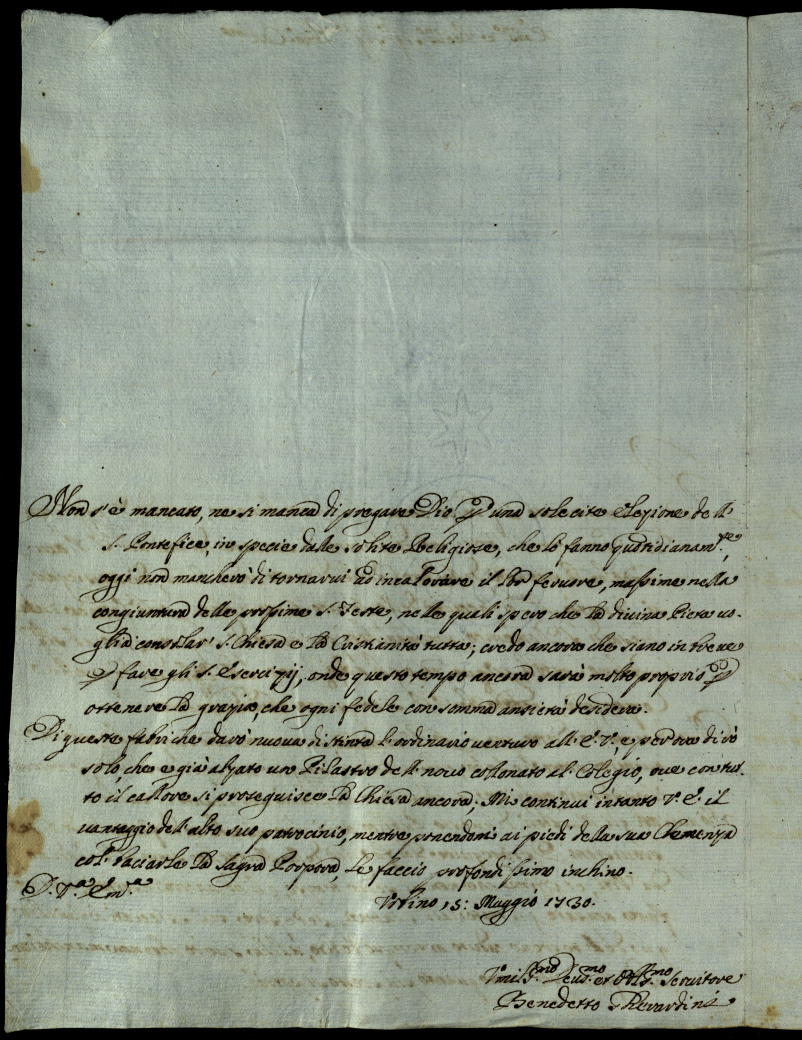 Non s'è mancato, ne si manca di pregare Dio p una solecite elezione dell'
S. Pontefice, in specie dalle solite Religiose, che lo fanno quotidianam.te,
oggi non mancherò di tornarui ad incalorare il lor feruore, massime nella
congiuntura delle prossime S. Feste, nelle quali spero che la diuina Pietà uo-
glia consolar' S. Chiesa e la Cristianità tutta; credo ancora che siano in breue
p fare gli S. Esercizij, onde questo tempo ancora sarà molto proprio p
ottenere la grazia, che ogni fedele con somma ansietà desidera.
Di queste fabriche darò nuoua distinta l'ordinario uenturo all' E. V., e per ora dirò
solo, che e già alzato un Pilastro dell nouo collonato al Colegio, oue con tut-
to il callore si proseguisce la Chiesa ancora; Mi continui intanto V. E. il
uantaggio dell'alto suo patrocinio, mentre ponendomi ai piedi della sua Clemenza
col baciarle la Sagra Porpora, le faccio profondissimo inchino.
D. V.a Em.a
Vrbino 15: Maggio 1730.
Vmil.mo Deu.mo et Obl.mo Seruitore
Benedetto